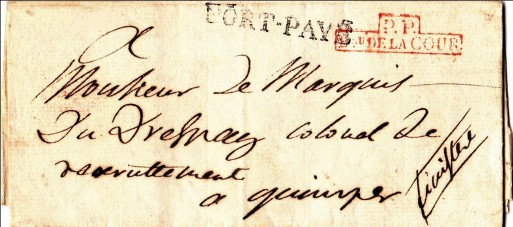 PORT-PAYÉ
P.P.
Bau DE LA COUR
a
Monsieur Le Marquis
Du Dresnay colonel De
recruttement
a quimper
finistere